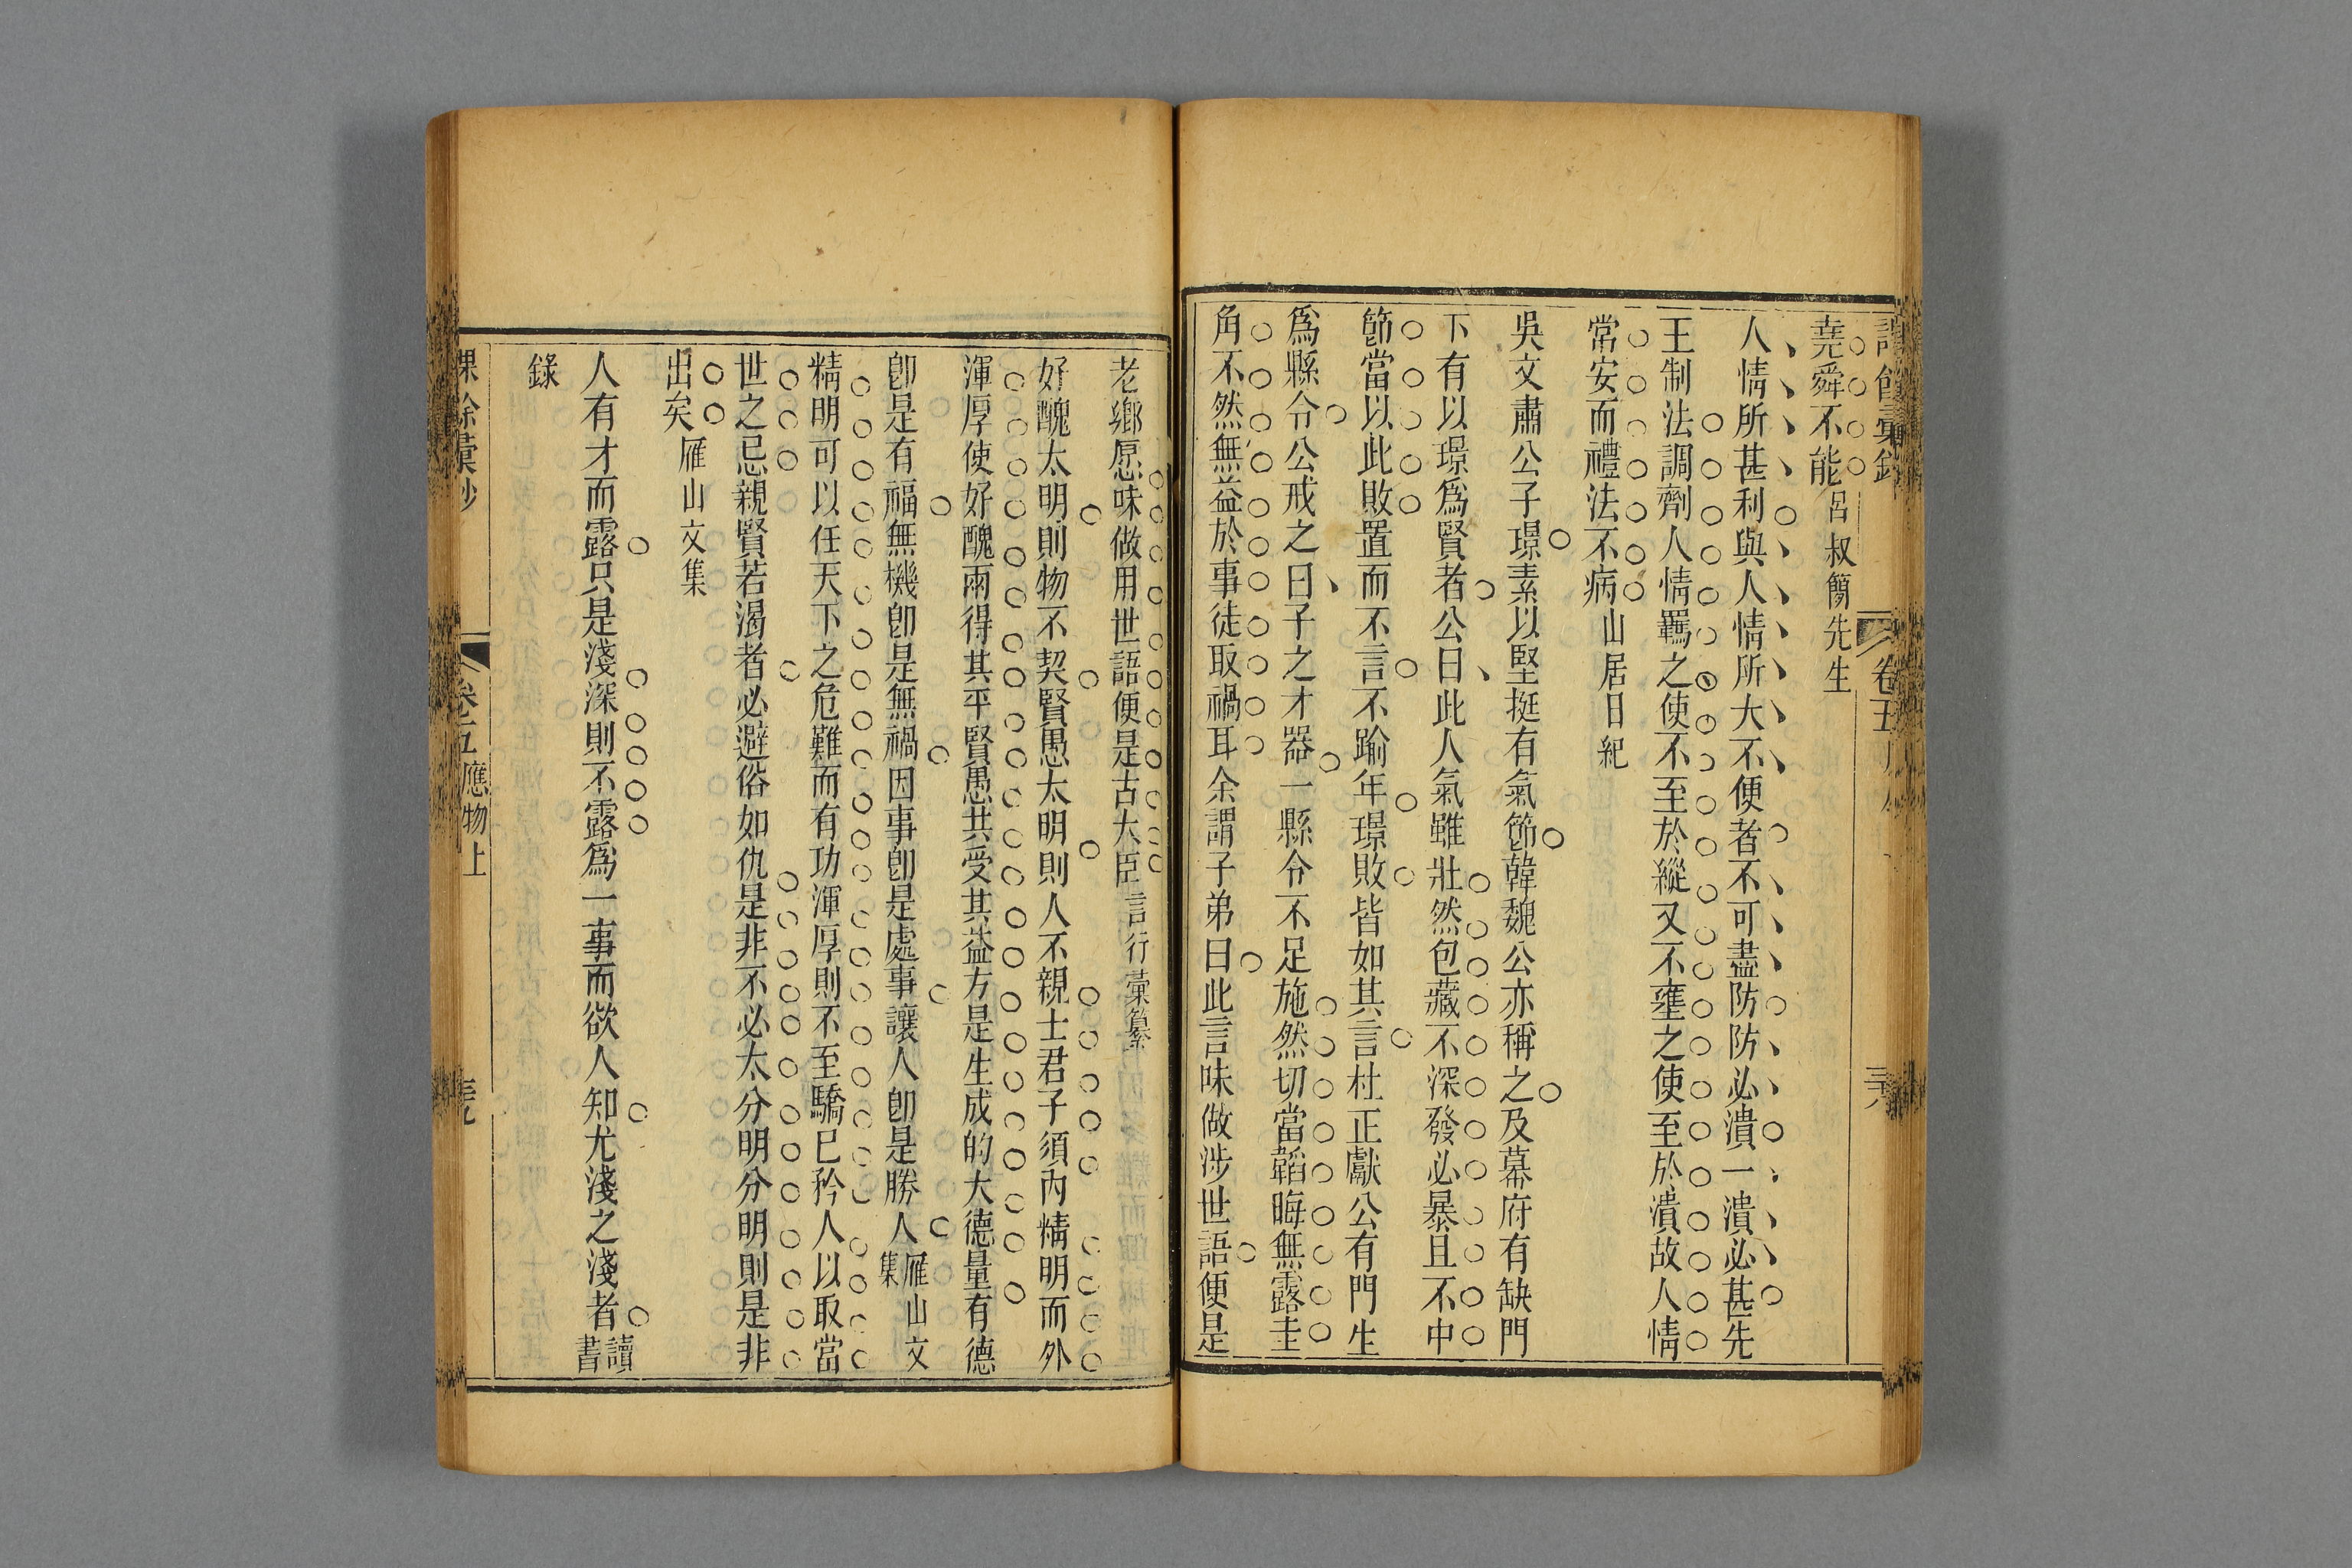 堯舜不能呂叔簡先生
人情所甚利與人情所大不便者不可盡防防必潰一潰必甚先
王制法調劑人情羈之使不至於縱又不壅之使至於潰故人情
常安而禮法不病山居日紀
吳文肅公子璟素以堅挺有氣節韓魏公亦稱之及幕府有缺門
下有以璟爲賢者公曰此人氣雖壯然包藏不深發必暴且不中
節當以此敗置而不言不踰年璟敗皆如其言杜正獻公有門生
爲縣令公戒之曰子之才器一縣令不足施然切當韜晦無露圭
角不然無益於事徒取禍耳余謂子弟曰此言味做涉世語便是
老鄉愿味做用世語便是古大臣言行彙纂
好醜太明則物不契賢愚太明則人不親士君子須內精明而外
渾厚使好醜兩得其平賢愚共受其益方是生成的大德量有德
卽是有福無機卽是無禍因事卽是處事讓人卽是勝人雁山文集
精明可以任天下之危難而有功渾厚則不至驕已矜人以取當
世之忌親賢若渴者必避俗如仇是非不必太分明分明則是非
出矣雁山文集
人有才而露只是淺深則不露爲一事而欲人知尤淺之淺者讀書
錄
課餘彙鈔
卷五 應物上